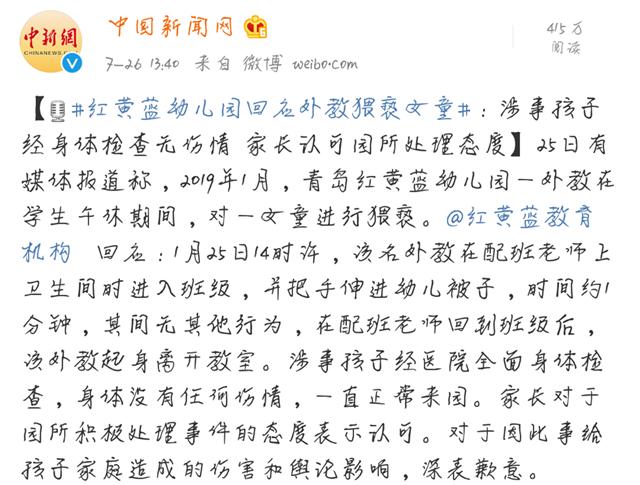 中新網
CHINANEWS
中国新闻网
415万
阅读
7-26 13:40 来自 微博 weibo.com
【#红黄蓝幼儿园回应外教猥亵女童#：涉事孩子
经身体检查无伤情 家长认可园所处理态度】25日有
媒体报道称，2019年1月，青岛红黄蓝幼儿园一外教在
学生午休期间，对一女童进行猥亵。@红黄蓝教育
机构 回应：1月25日14时许，该名外教在配班老师上
卫生间时进入班级，并把手伸进幼儿被子，时间约1
分钟，其间无其他行为，在配班老师回到班级后，
该外教起身离开教室。涉事孩子经医院全面身体检
查，身体没有任何伤情，一直正常来园。家长对于
园所积极处理事件的态度表示认可。对于因此事给
孩子家庭造成的伤害和舆论影响，深表歉意。